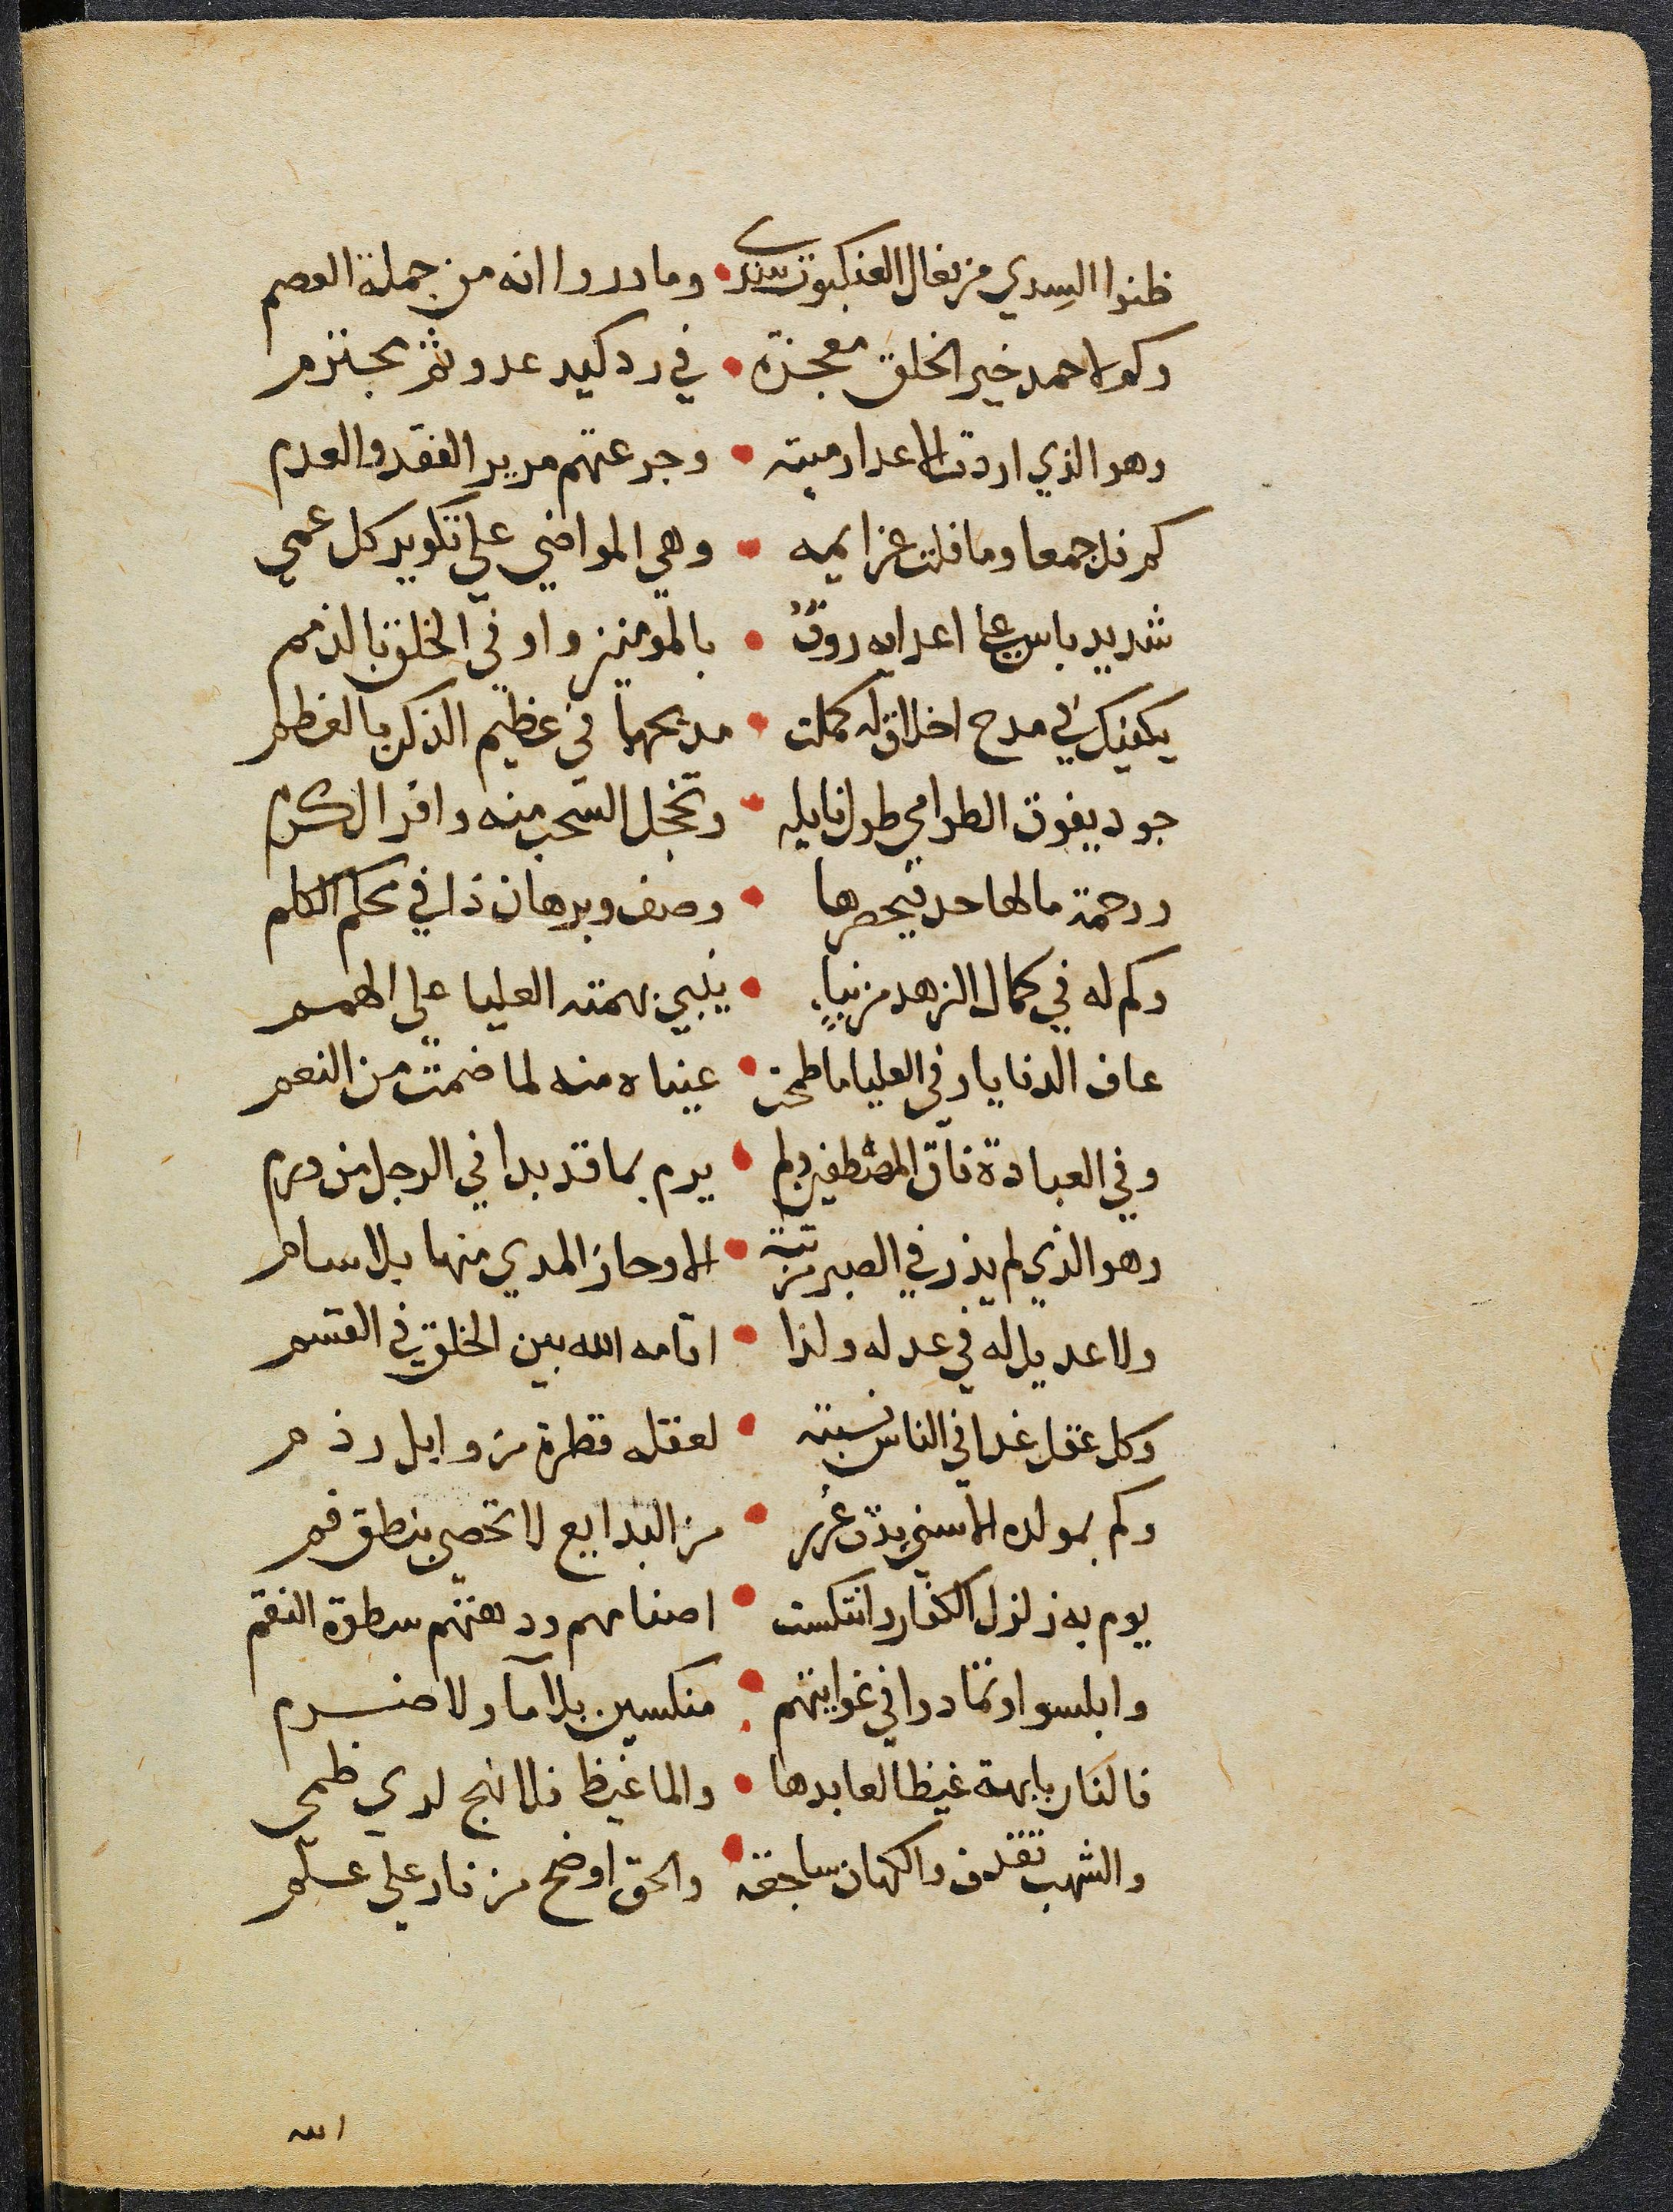 ظنوا السدي من فعال العنكبوت سدى • وما دروا انه من جملة العصم
وكم لاحمد خير الخلق معجزة • في رد كيد عدو ثم مجترم
وهو الذي اردت الاعدا رميته • وجرعتهم مرير الفقد والعدم
كم فل جمعا وما فلت عزايمه • وهي المواضي علي تكوير كل عمي
شديد باس علي اعدايه روفٌ • بالمومنين واوفي الخلق بالذمم
يكفيك في مدح اخلاق له كملت • مديحها في عظيم الذكر بالعظم
جود يفوق الطوامي طول نايله • وتخجل السحب منه وافر الكرم
ورحمة ما لها حد فيحصرها • وصف وبرهان ذا في محكم الكلم
وكم له في كمال الزهد من نباٍ • ينبي بهمته العليا علي الهمم
عاف الدنايا وفي العليا ما طمحت • عيناه منه لما ضمت من النعم
وفي العبادة فاق المصطفين ولم • يرم بما قد بدا في الرجل من ورم
وهو الذي لم يذر في الصبر مرتبة • الا وحاز المدي منها بلا سام
ولا عديل له في عدله ولذا • اقامه الله بين الخلق في القسم
وكل عقل غدا في الناس نسبته • لعقله قطرة من وابل رذم
وكم بمولده الاسني بدت غرر • من البدايع لا تحصي بنطق فم
يوم به زلزل الكفار وانتكست • اصنامهم ودهتهم سطوة النقم
وابلسوا وتمادوا في غوايتهم • منكسين بلا مآ ولا ضرم
فالنار بايهة غيظا لعابدها • والما غيظ فلا نهج لدي ظمي
والشهب تقذف والكهان ساجعة • والحق اوضح من نار علي علم
الله